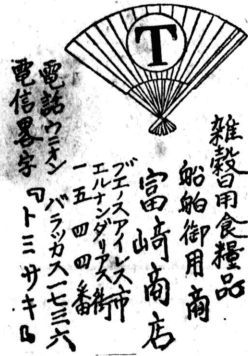 T
雑穀日用食糧品
船舶御用商
富﨑商店
ブエノスアイレス市
エルナンダリアス街
一五四四番
電話ウニオン
バラッカス一七三六
電信畧字『トミサキ』